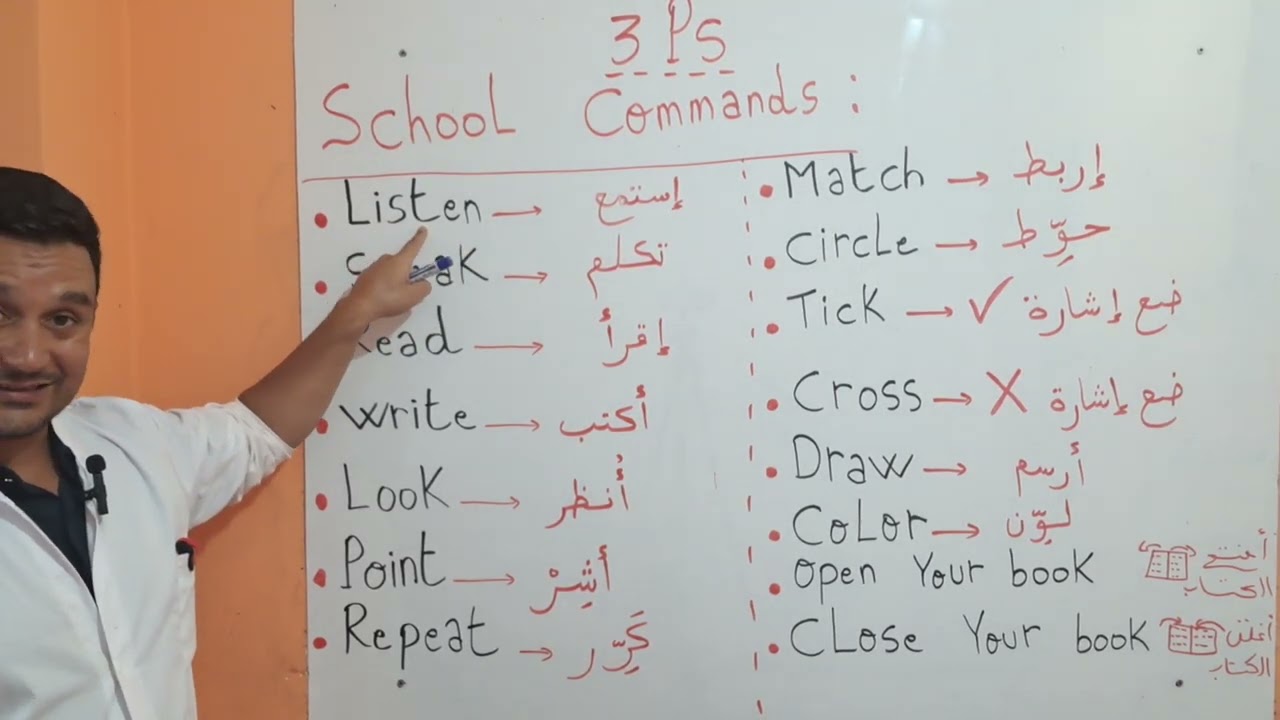 3 Ps
School Commands :
• Listen → إستمع
• S ak → تكلم
• Read → إقرأ
• Write → أكتب
• Look → أُنظر
• Point → أَشِرْ
• Repeat → كَرِّر
• Match → إربط
• Circle → حوِّط
• Tick → ✓ ضع إشارة
• Cross → X ضع إشارة
• Draw → أرسم
• Color → لوِّن
• Open Your book أفتح الكتاب
• Close Your book أغلق الكتاب